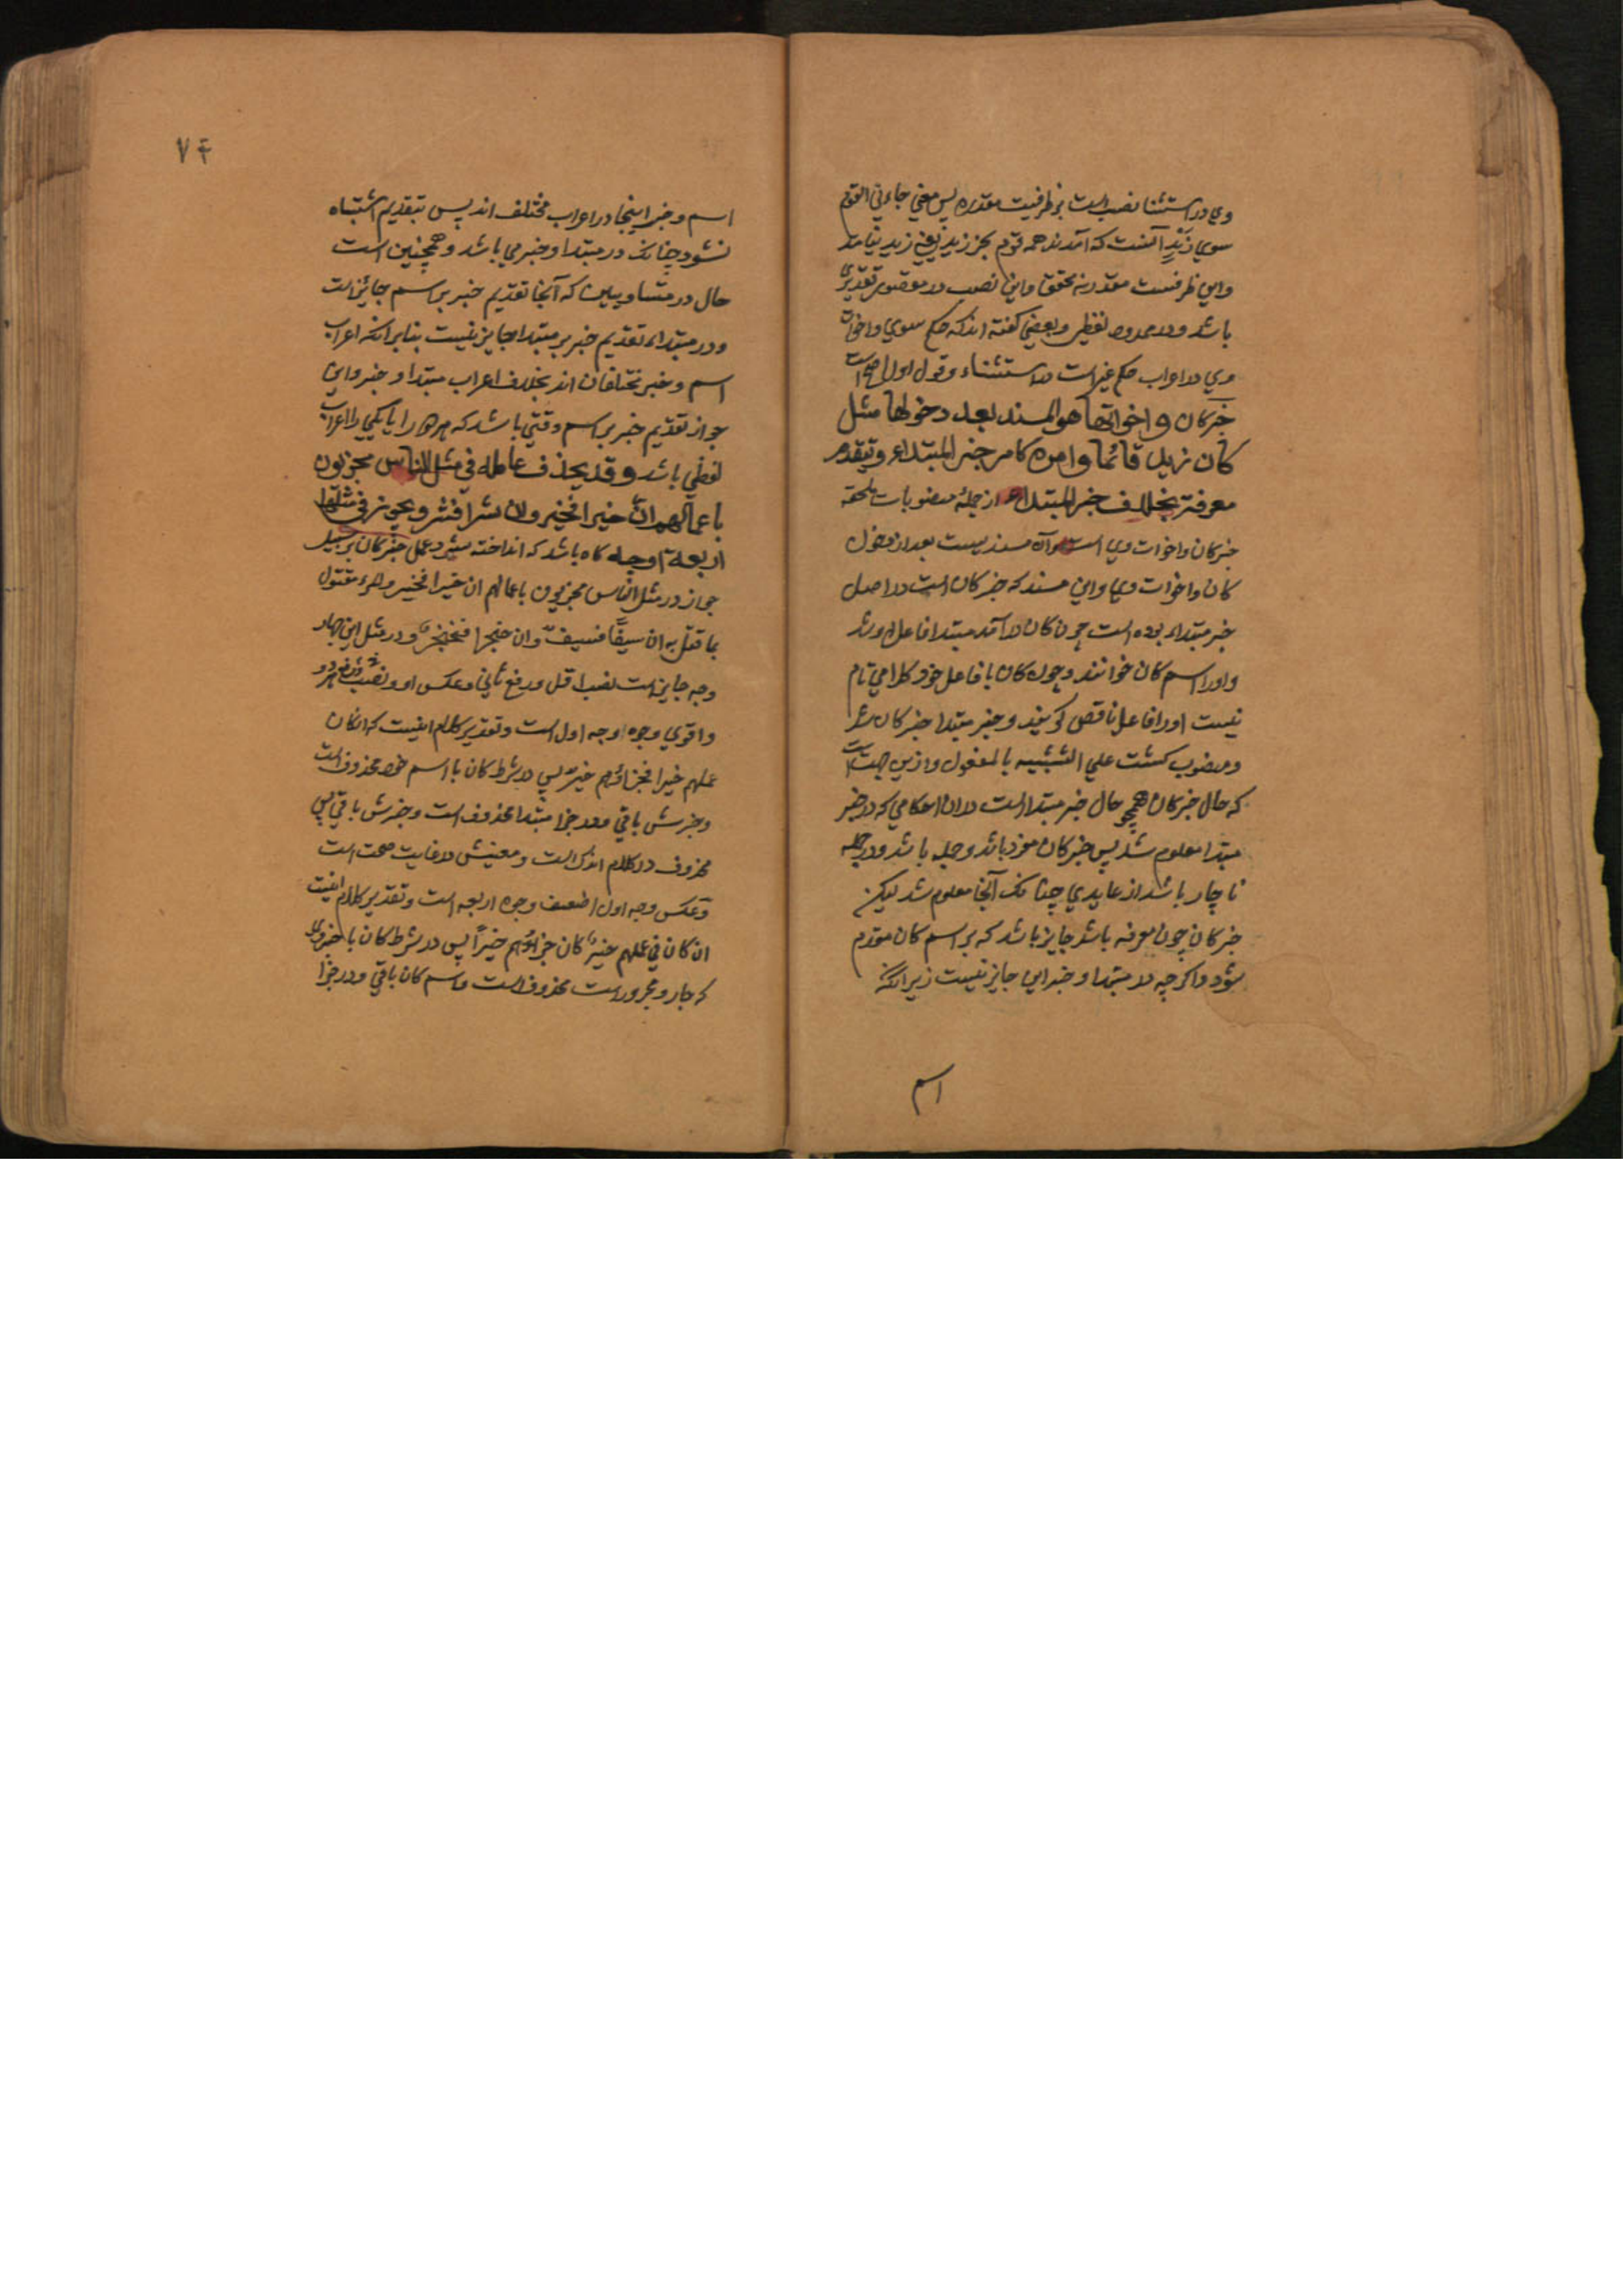 وي در استثنا نصب است بر ظرفیت مقدره پس معني جاءني القوم
سوي زید آنست که آمدند همه قوم بجز زید یعني زید نیامد
واین ظرفیست مقدر نه محقق واین نصب در مقصور تقدیري
باشد ودر ممدود لفظي وبعضي گفته اند که حکم سوي واخوات
وي در اعراب حکم غیر است در استثناء وقول اول اصح است
خبر کان واخواتها هو المسند بعد دخولها مثل
کان زید قائما وامره کامر خبر المبتداء ویتقدم
معرفة بخلاف خبر المبتداء از جملهٔ منصوبات ملحقه
خبر کان واخوات وي است وآن مسندیست بعد از دخول
کان واخوات وي واین مسند که خبر کان است در اصل
خبر مبتداء بوده است چون کان در آمد مبتدا فاعل او شد
واورا اسم کان خوانند وچون کان با فاعل خود کلامي تام
نیست اورا فاعل ناقص گویند وخبر مبتدا خبر کان شد
ومنصوب گشت علي التشبیه بالمفعول وازین جهت است
که حال خبر کان همچو حال خبر مبتدا است در ان احکامي که در خبر
مبتدا معلوم شد پس خبر کان مفرد باشد وجمله باشد ودر جمله
ناچار باشد از عایدي چنانک آنجا معلوم شد لیکن
خبر کان چون معرفه باشد جایز باشد که بر اسم کان مقدم
شود واگرچه در مبتدا وخبر این جایز نیست زیرا که
اسم
٧۴
اسم وخبر اینجا در اعراب مختلف اند پس بتقدیم اشتباه
نشود چنانک در مبتدا وخبر مي باشد وهمچنین است
حال در متساویین که آنجا تقدیم خبر بر اسم جایز است
ودر مبتداء تقدیم خبر بر مبتدا جایز نیست بنابر انکه اعراب
اسم وخبر مختلفان اند بخلاف اعراب مبتدا وخبر واین
جواز تقدیم خبر بر اسم وقتي باشد که هر دو را یا یکي را اعراب
لفظي باشد وقد یحذف عامله في مثل الناس مجزیون
باعمالهم ان خیرا فخیر وان شرا فشر ویجوز في مثلها
اربعة اوجه گاه باشد که انداخته میشود عامل خبر کان بر سبیل
جواز در مثل الناس مجزیون باعمالهم ان خیرا فخیر والمرء مقتول
بما قتل به ان سیفا فسیف وان خنجرا فخنجر ودر مثل این چهار
وجه جایز است نصب اول ورفع ثاني وعکس او ونصب هر دو
واقوي وجوه وجه اول است وتقدیر کلام اینست که ان کان
عملهم خیرا فجزاؤهم خیر پس در شرط کان با اسم خود محذوف است
وخبرش باقي ودر جزا مبتدا محذوف است وخبرش باقي پس
محذوف در کلام اندک است ومعنیش در غایت صحت است
وعکس وجه اول اضعف وجوه اربعه است وتقدیر کلام اینست
ان کان في عملهم خیر کان جزاؤهم خیرا پس در شرط کان با خبر وي
که جار ومجرور است محذوف است واسم کان باقي ودر جزا